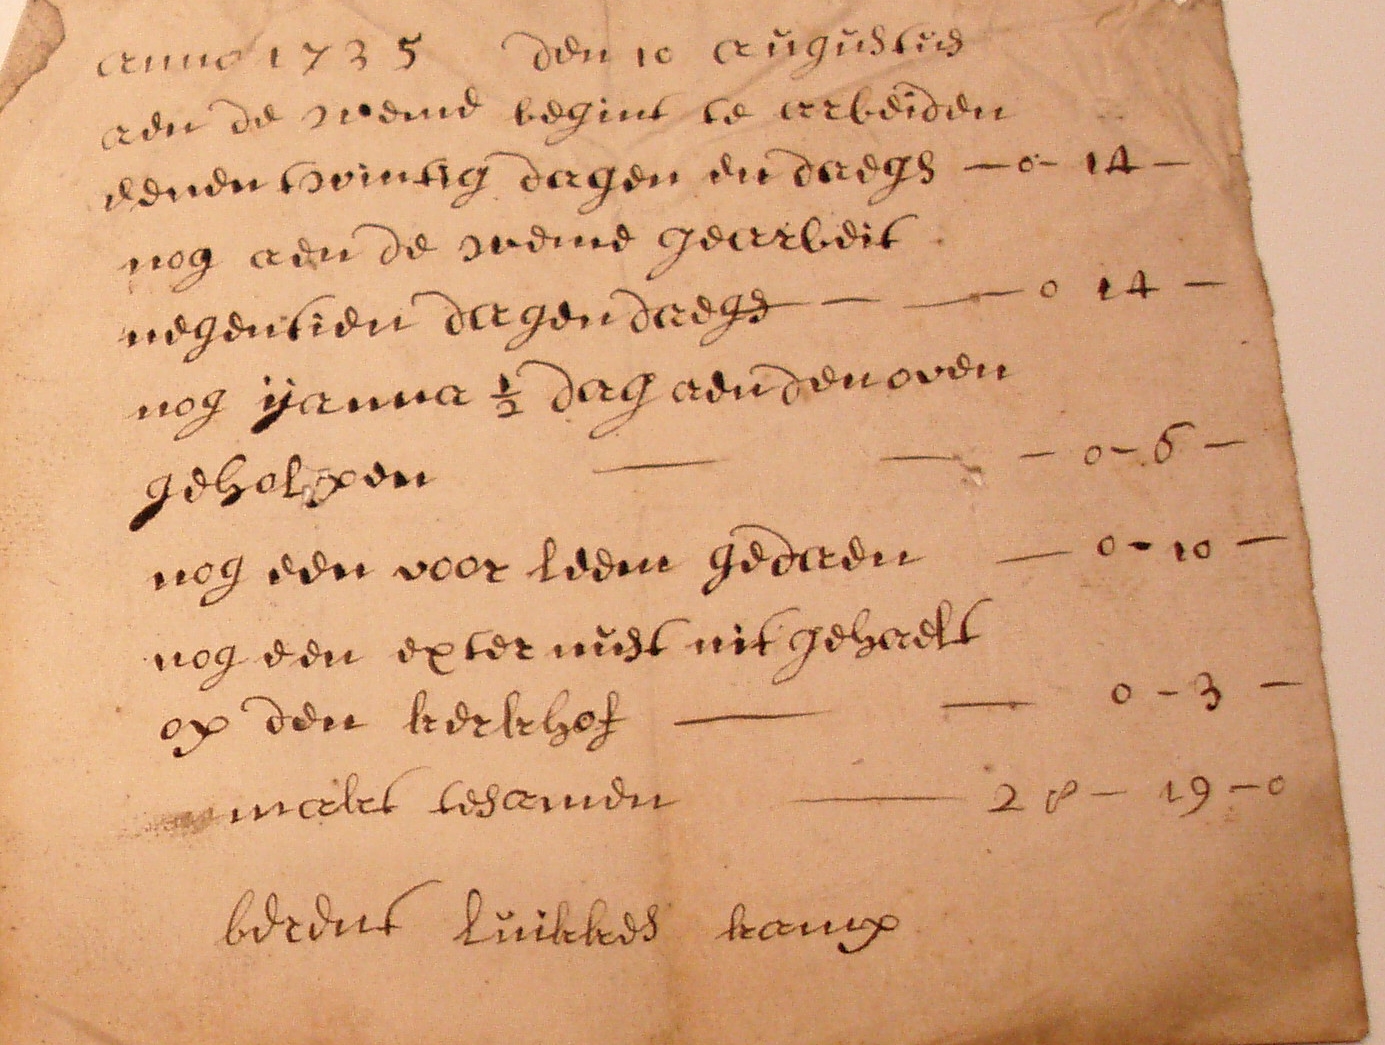 anno 1735 den 10 augustus
aen de weme begint te arbeiden
eenentwintig dagen en daegs — 0 - 14 —
nog aen de weme gearbeit
negentien dagen daegs — — — 0 14 —
nog ÿanna ½ dag aen den oven
geholpen — — — 0 - 6 —
nog een voor leem gedaen — 0 - 10 —
nog een exter nust uit gehaelt
op den kerkhof — — 0 - 3 —
makt tesamen — 28 - 19 - 0
berent luikkes kamp